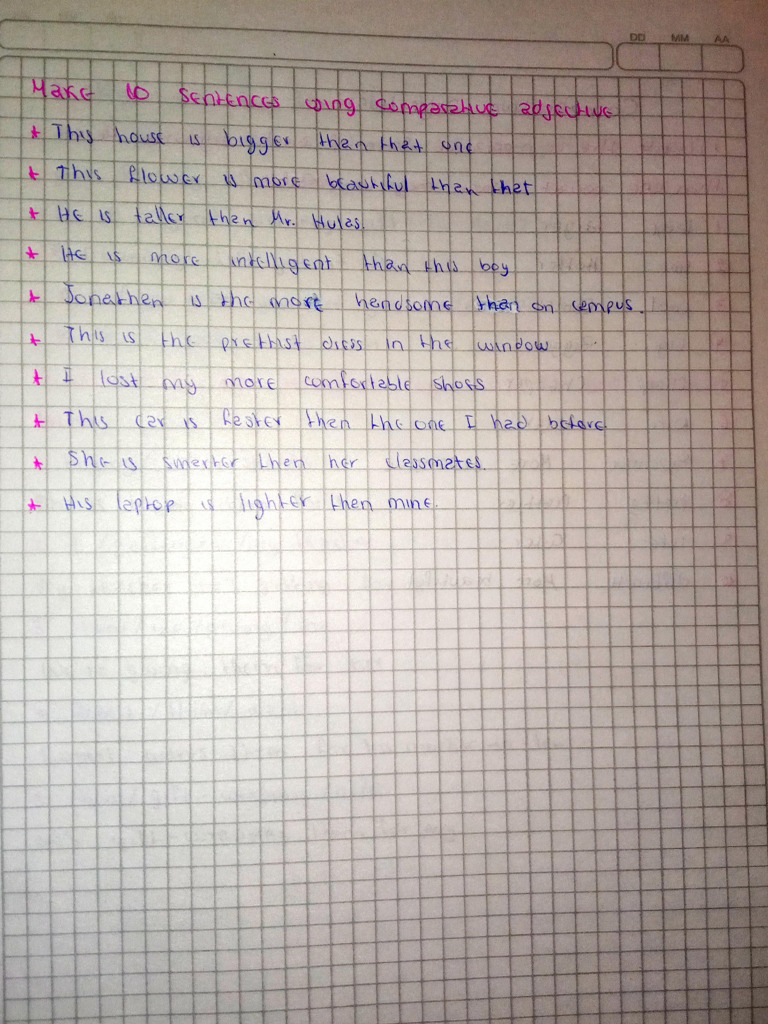 DD MM AA
Make 10 sentences using comparative adjective
* This house is bigger than that one
* This flower is more beautiful than that
* He is taller than Mr. Hulas.
* He is more intelligent than this boy
* Jonathan is the more handsome than on campus.
* This is the prettist dress in the window
* I lost my more comfortable shoes
* This car is faster then the one I had before
* She is smarter then her classmates.
* His laptop is lighter then mine.